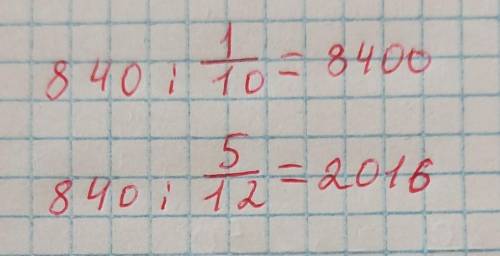 840 : 1/10 = 8400
840 : 5/12 = 2016